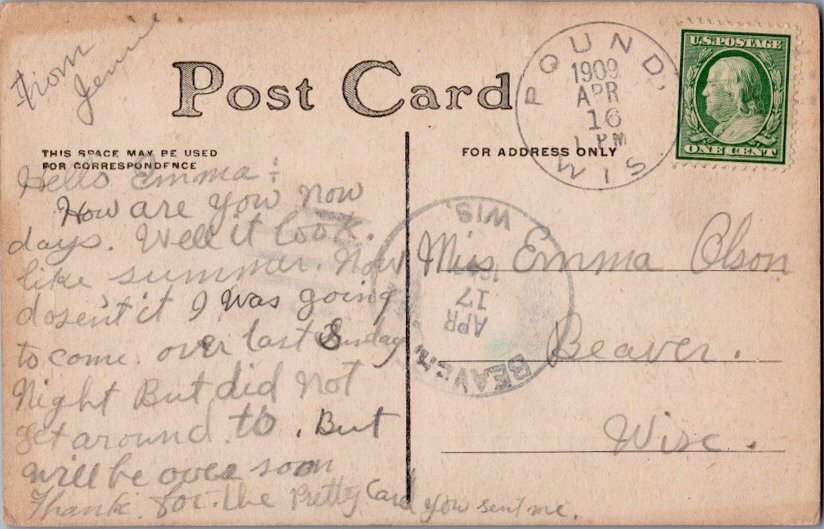 from
Jennie.
Post Card
THIS SPACE MAY BE USED
FOR CORRESPONDENCE
FOR ADDRESS ONLY
POUND, WIS.
1909
APR
16
1 PM
U.S. POSTAGE
ONE CENT
Hello Emma:
How are you now
days. Well it look.
like summer. now
dosen't it I was going
to come. over last Sunday
Night But did Not
get around. to. But
will be over soon
Thank. for. the Pretty Card you sent me.
BEAVER, WIS.
APR
17
Miss Emma Olson
Beaver.
Wisc.